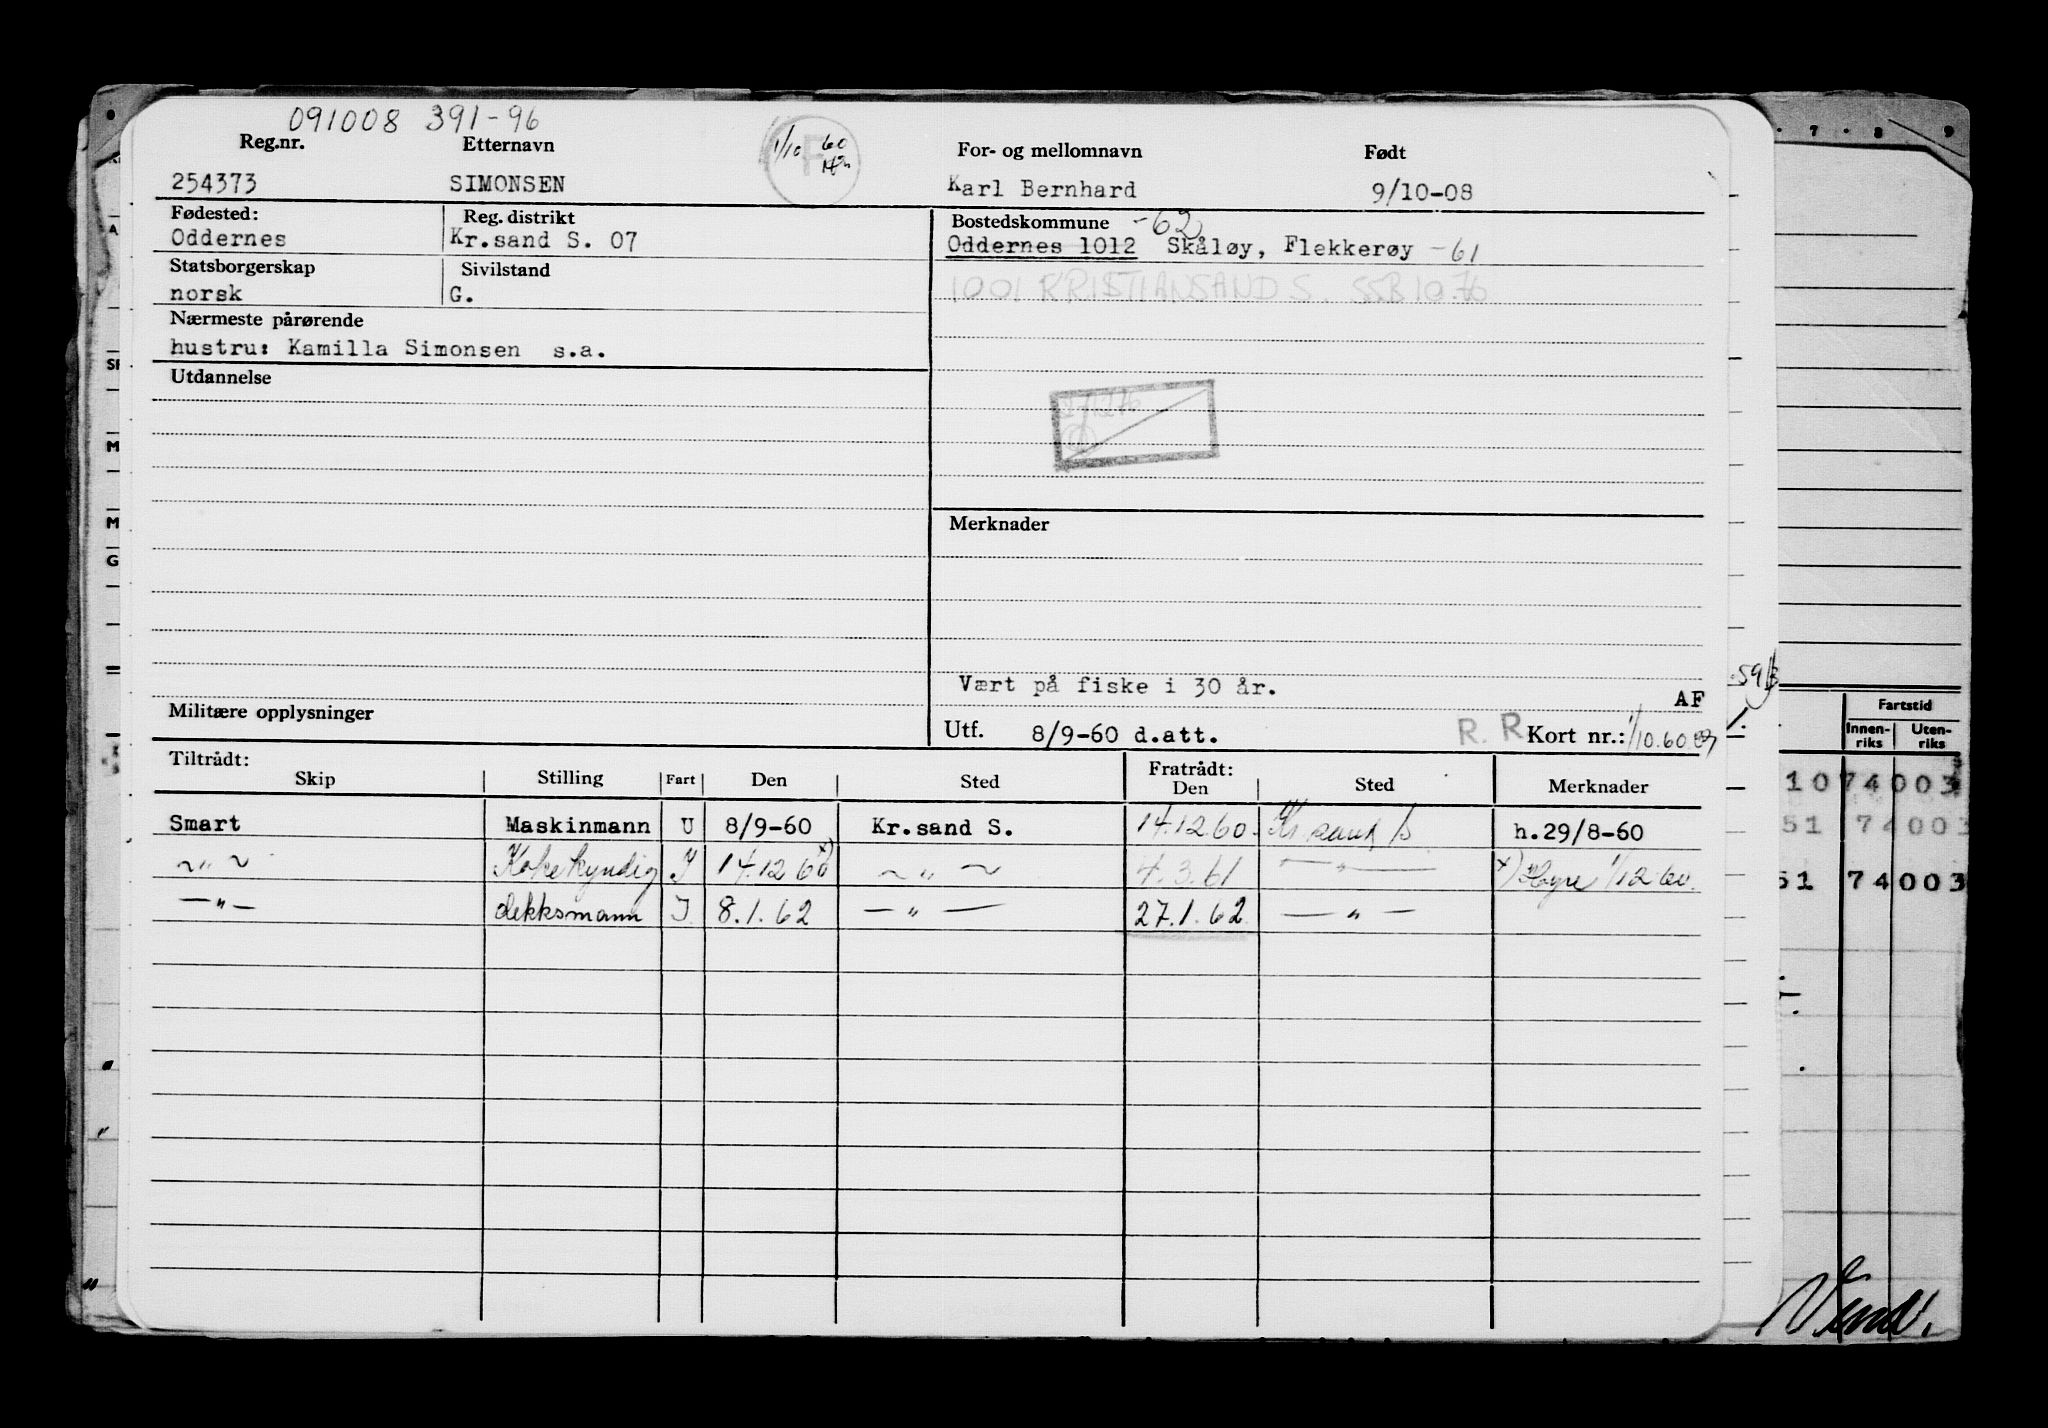 091008 391-96
Reg.nr. Etternavn For- og mellomnavn Født
1/10 60
F
254373 SIMONSEN Karl Bernhard 9/10-08
Fødested: Reg. distrikt Bostedskommune -62
Oddernes Kr.sand S. 07 Oddernes 1012 Skåløy, Flekkerøy -61
Statsborgerskap Sivilstand
norsk G. 1001 KRISTIANSAND S. SSB 10.76
Nærmeste pårørende
hustru: Kamilla Simonsen s.a.
Utdannelse
Merknader
Vært på fiske i 30 år.
AF
Militære opplysninger
Utf. 8/9-60 d.att. R. R Kort nr.: 1/10.60
Tiltrådt: Fratrådt:
Skip Stilling Fart Den Sted Den Sted Merknader
Smart Maskinmann U 8/9-60 Kr.sand S. 14.12.60. Kr.sand S h.29/8-60
~ " ~ Kokekyndig I 14.12 60 x) ~ " ~ 4.3.61 — " — x) Hyre 1/12 60.
— " — dekksmann I 8.1.62 — " — 27.1.62 — " —
7 8 9
A
SF
M
M
G
59
Fartstid
Innen-riks Uten-riks
10 74 003
51 74 003
51 74 003
Vend!